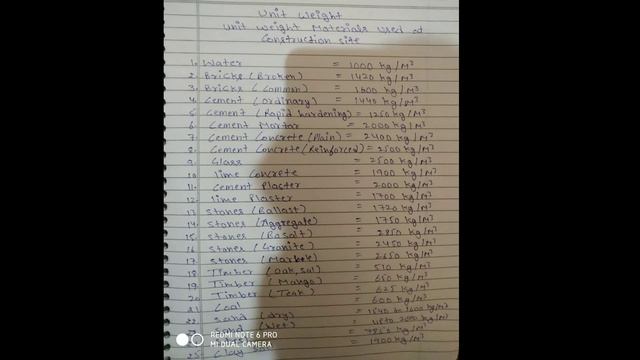 Unit Weight
Unit Weight Materials used at
Construction site
1. Water = 1000 kg/M³
2. Bricks (Broken) = 1420 kg/M³
3. Bricks (Common) = 1600 kg/M³
4. Cement (ordinary) = 1440 kg/M³
5. Cement (Rapid hardening) = 1250 kg/M³
6. Cement Mortar = 2000 kg/M³
7. Cement Concrete (Plain) = 2400 kg/M³
8. Cement Concrete (Reinforced) = 2500 kg/M³
9. Glass = 2500 kg/M³
10. lime Concrete = 1900 kg/M³
11. Cement Plaster = 2000 kg/M³
12. lime Plaster = 1700 kg/M³
13. Stones (Ballast) = 1720 kg/M³
14. Stones (Aggregate) = 1750 kg/M³
15. Stones (Basalt) = 2850 kg/M³
16. Stones (Granite) = 2450 kg/M³
17. Stones (Marble) = 2650 kg/M³
18. Timber (oak, sal) = 510 kg/M³
19. Timber (Mango) = 650 kg/M³
20. Timber (Teak) = 625 kg/M³
21. Coal = 600 kg/M³
22. Sand (dry) = 1540 to 1600 kg/M³
Sand (wet) = kg/M³
= kg/M³
25. Clay = 1900 kg/M³
REDMI NOTE 6 PRO
MI DUAL CAMERA